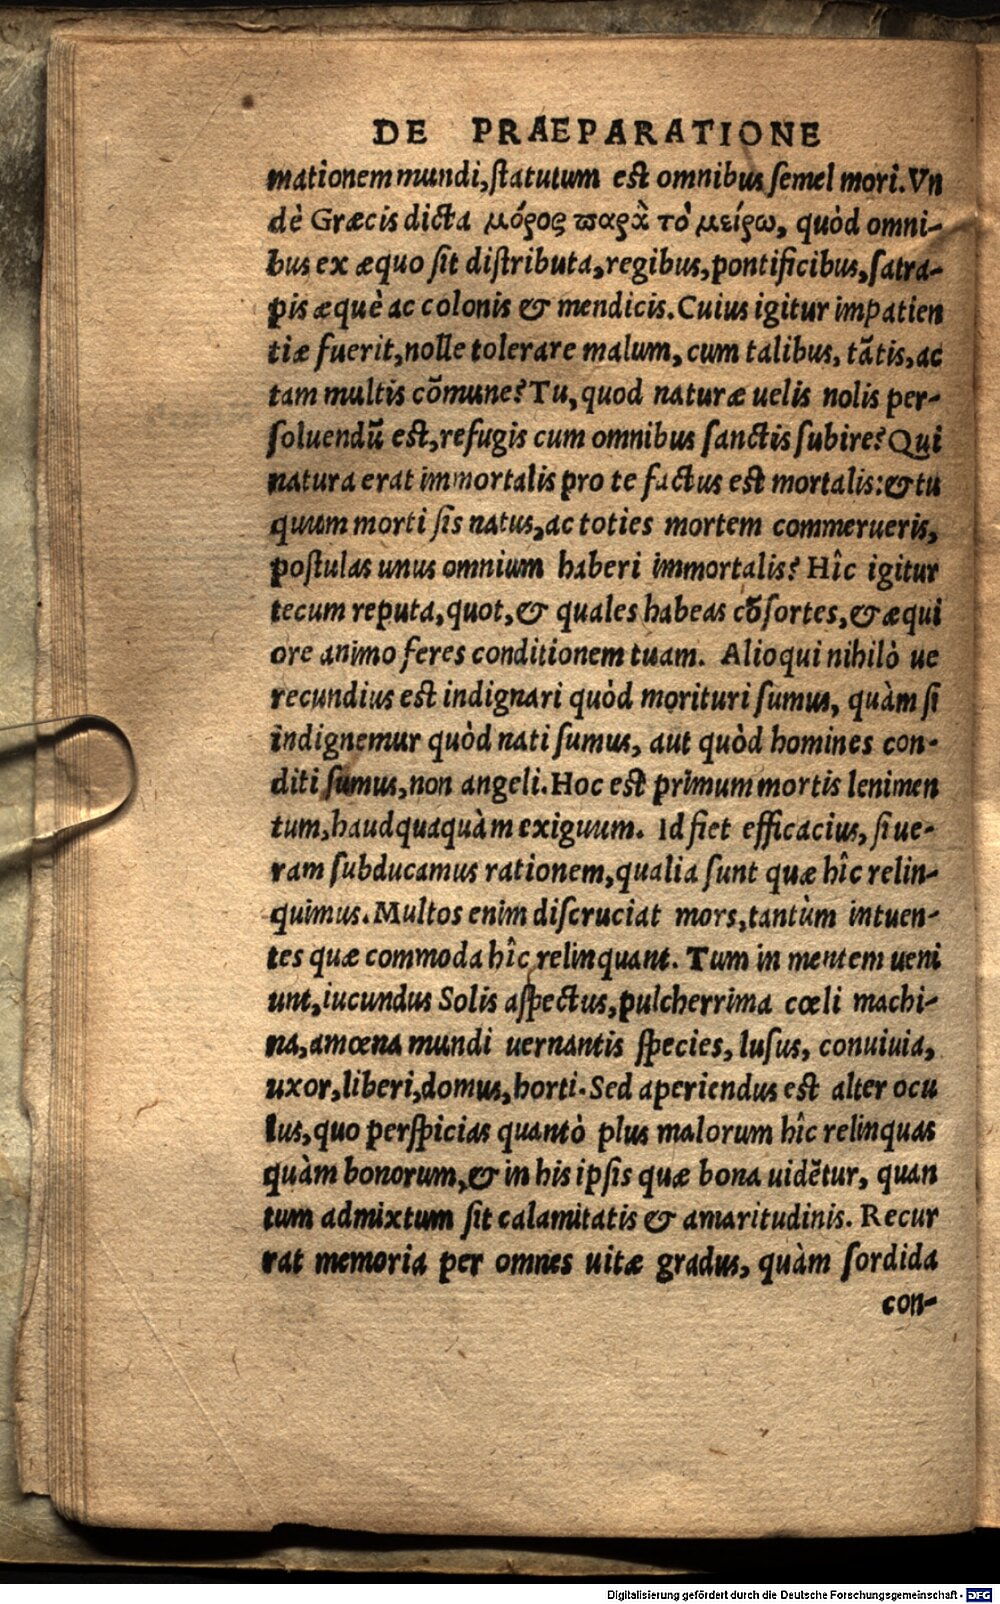 DE PRAEPARATIONE
mationem mundi, statutum est omnibus semel mori. Vn
dè Græcis dicta μόρος παρὰ τὸ μείρω, quòd omni-
bus ex æquo sit distributa, regibus, pontificibus, satra-
pis æquè ac colonis & mendicis. Cuius igitur impatien
tiæ fuerit, nolle tolerare malum, cum talibus, tãtis, ac
tam multis cõmune? Tu, quod naturæ uelis nolis per-
soluendũ est, refugis cum omnibus sanctis subire? Qui
natura erat immortalis pro te factus est mortalis: & tu
quum morti sis natus, ac toties mortem commerueris,
postulas unus omnium haberi immortalis? Hîc igitur
tecum reputa, quot, & quales habeas cõsortes, & æqui
ore animo feres conditionem tuam. Alioqui nihilò ue
recundius est indignari quòd morituri sumus, quàm si
indignemur quòd nati sumus, aut quòd homines con-
diti sumus, non angeli. Hoc est primum mortis lenimen
tum, haudquaquàm exiguum. Id fiet efficacius, si ue-
ram subducamus rationem, qualia sunt quæ hîc relin-
quimus. Multos enim discruciat mors, tantùm intuen-
tes quæ commoda hîc relinquant. Tum in mentem ueni
unt, iucundus Solis aspectus, pulcherrima cœli machi-
na, amœna mundi uernantis species, lusus, conuiuia,
uxor, liberi, domus, horti. Sed aperiendus est alter ocu
lus, quo perspicias quantò plus malorum hîc relinquas
quàm bonorum, & in his ipsis quæ bona uidẽtur, quan
tum admixtum sit calamitatis & amaritudinis. Recur
rat memoria per omnes uitæ gradus, quàm sordida
con-
Digitalisierung gefördert durch die Deutsche Forschungsgemeinschaft - DFG